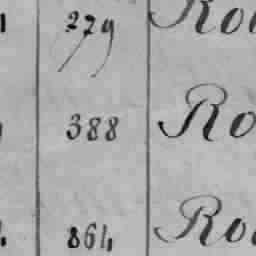 279 Ro
388 Ro
864 Ro